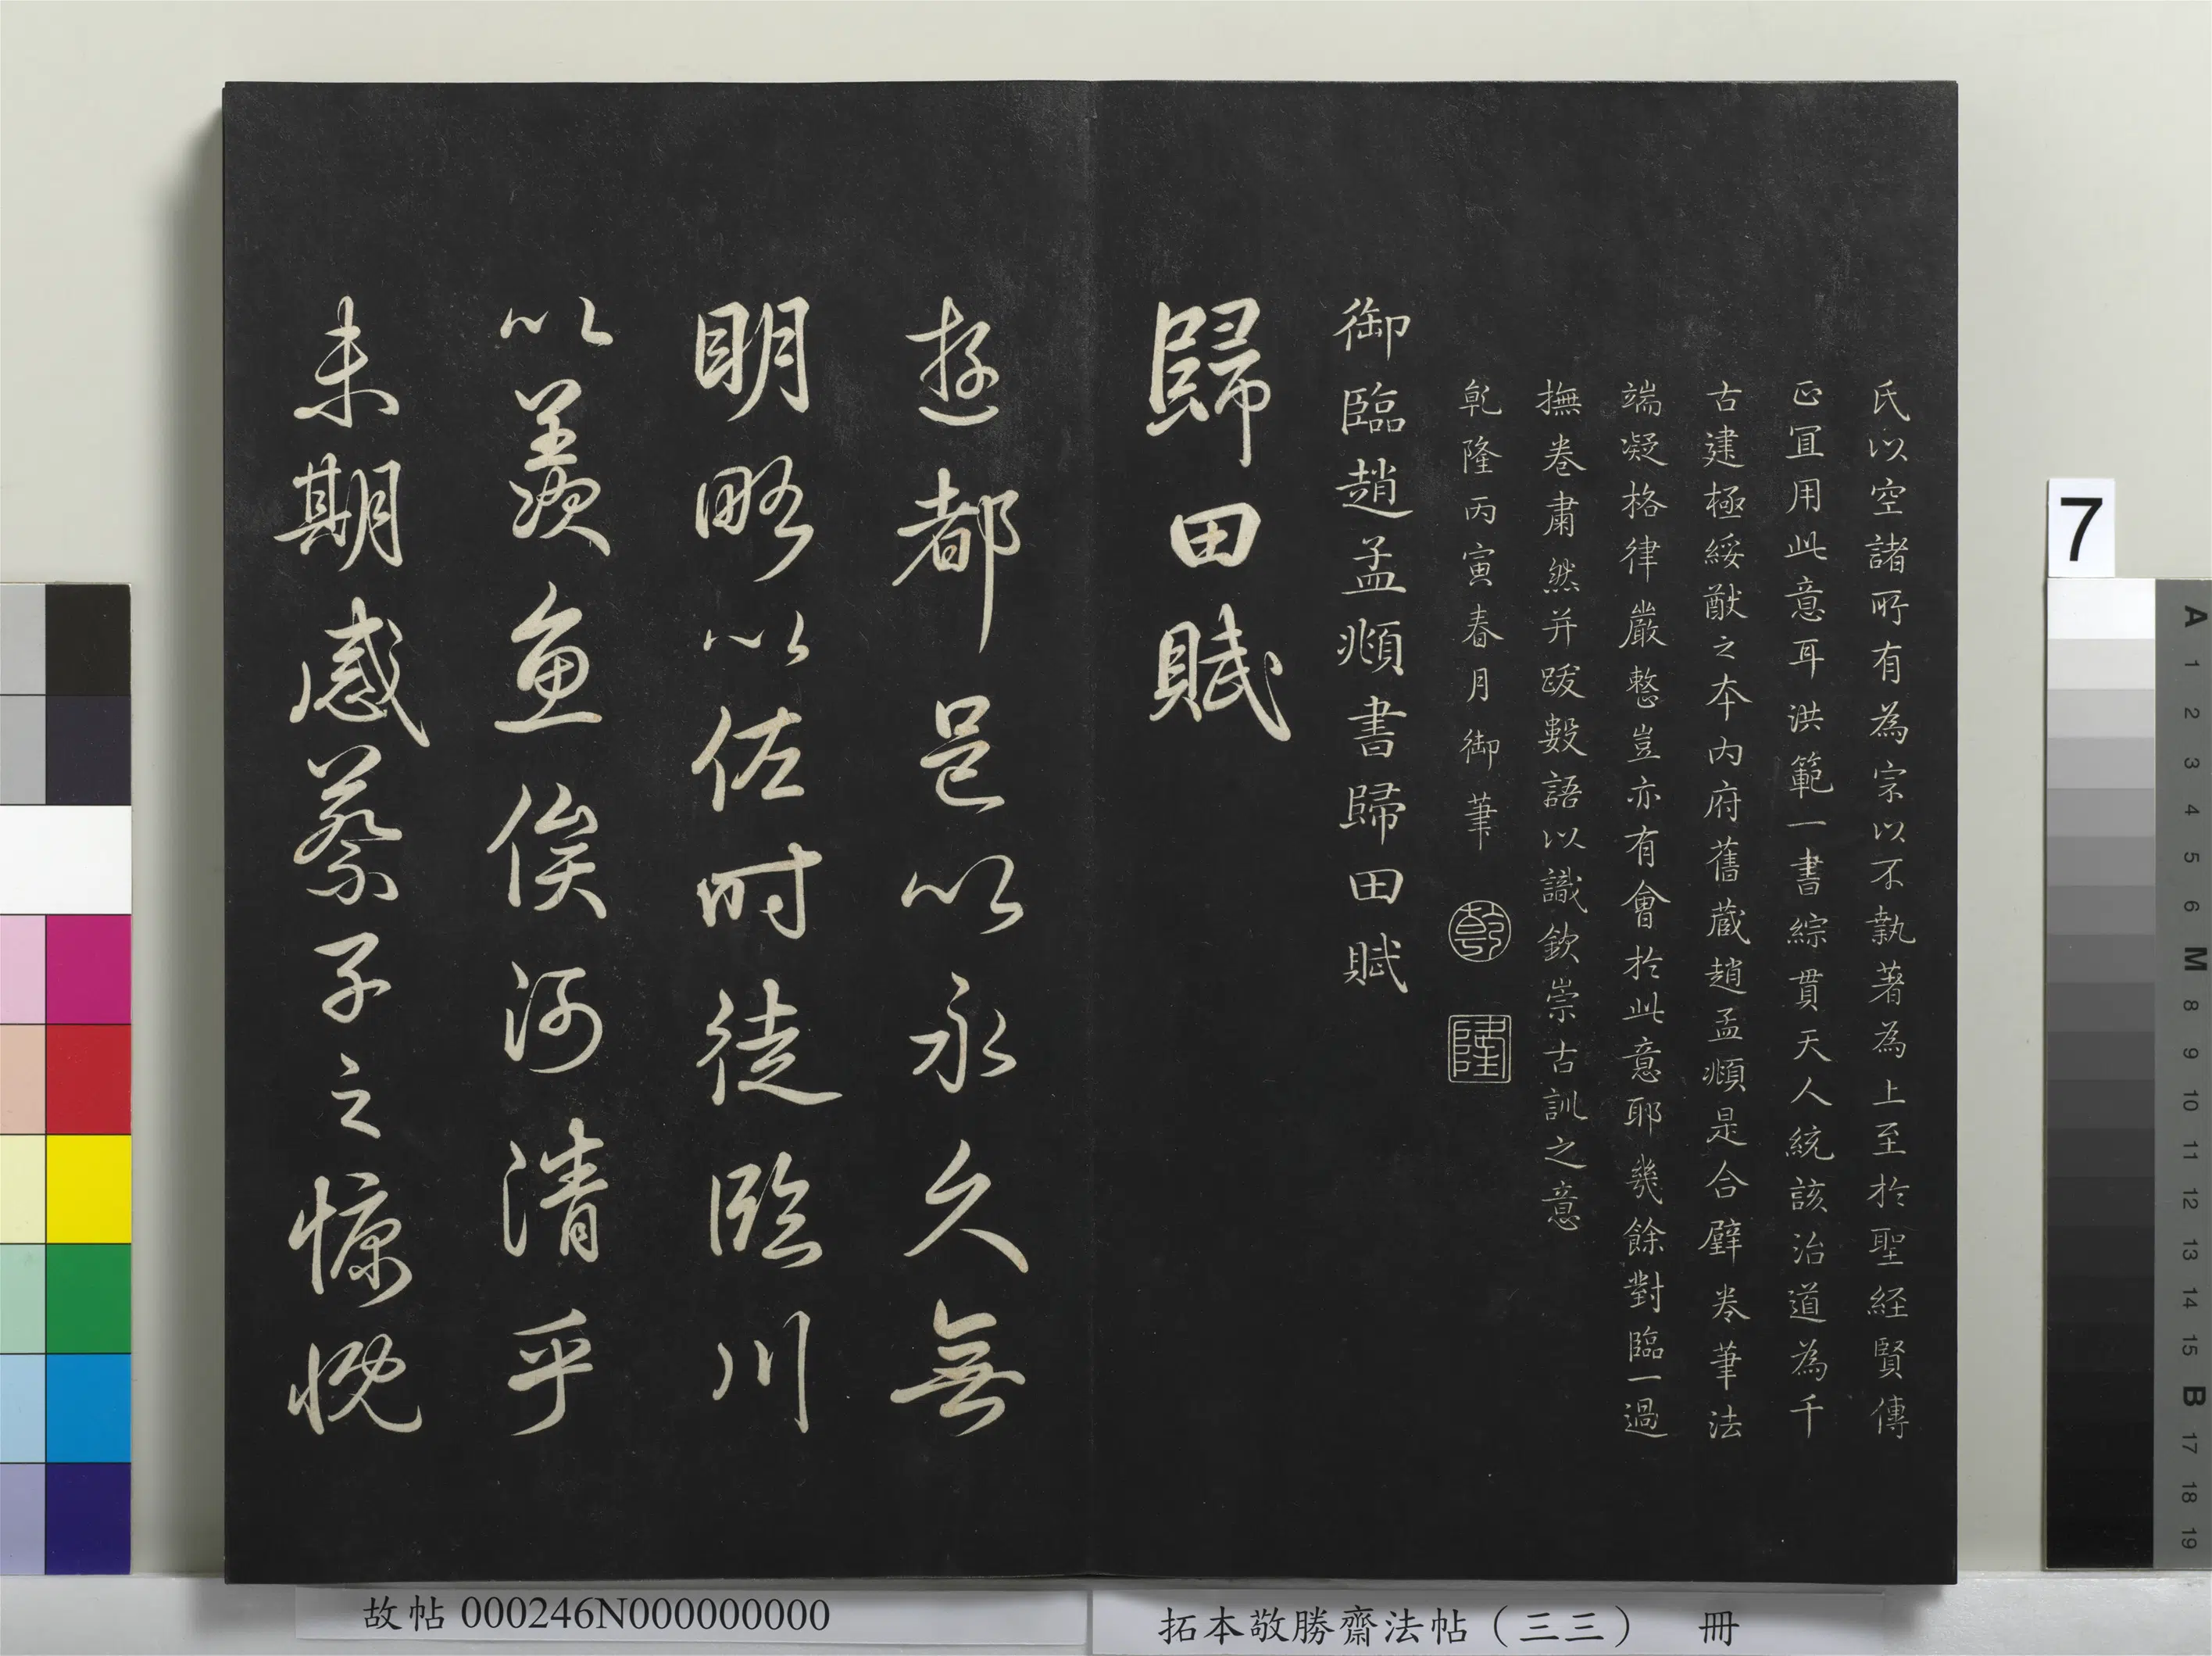 氏以空諸所有為宗以不執著為上至於聖経賢傳
正冝用此意耳洪範一書綜貫天人統該治道為千
古建極綏猷之本內府舊蔵趙孟頫是合璧卷筆法
端凝格律嚴整豈亦有會於此意耶幾餘對臨一過
撫卷肅然并跋數語以識欽崇古訓之意
乾隆丙寅春月御筆
乾
隆
御臨趙孟頫書歸田賦
歸田賦
遊都邑以永久無
明略以佐時徒臨川
以羨魚俟河清乎
未期感蔡子之慷慨
故帖 000246N000000000
拓本敬勝齋法帖（三三） 冊
7
A
1
2
3
4
5
6
M
8
9
10
11
12
13
14
15
B
17
18
19